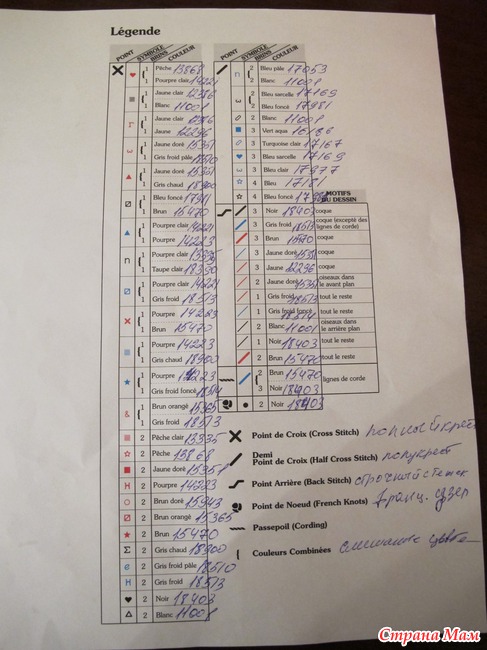 Légende
POINT SYMBOLE BRINS COULEUR
1 Pêche 13868
1 Pourpre clair 14221
1 Jaune clair 12386
1 Blanc 11001
1 Jaune clair
1 Jaune 12296
1 Jaune doré 15351
1 Gris froid pâle 18510
1 Jaune doré 15351
1 Gris chaud 18900
1 Bleu foncé 17981
1 Brun 15470
1 Pourpre clair 14221
1 Pourpre 14223
1 Pourpre clair
1 Taupe clair
1 Pourpre clair 14221
1 Gris froid 18513
1 Pourpre 14223
1 Brun 15470
1 Pourpre 14223
1 Gris chaud 18900
1 Pourpre 14223
1 Gris froid foncé 18514
1 Brun orangé 15365
1 Gris froid 18513
2 Pêche clair 13335
2 Pêche 13868
2 Jaune doré 15351
2 Pourpre 14223
2 Brun doré 15943
2 Brun orangé 15365
2 Brun 15470
Σ 2 Gris chaud 18900
e 2 Gris froid pâle 18510
H 2 Gris froid 18513
2 Noir 18403
2 Blanc 11001
POINT SYMBOLE BRINS COULEUR
2 Bleu pâle 17053
2 Blanc 11001
2 Bleu sarcelle 17169
2 Bleu foncé 17981
2 Blanc 11001
3 Vert aqua 16186
3 Turquoise clair 17167
3 Bleu sarcelle 17169
3 Bleu clair 17977
4 Bleu 17181
4 Bleu foncé 17981
MOTIFS DU DESSIN
3 Noir 18403 coque
3 Gris froid 18513 coque (excepté des lignes de corde)
3 Brun 15470 coque
3 Jaune doré 15351 coque
3 Jaune 12296 coque
2 Jaune doré 15351 oiseaux dans le avant plan
1 Gris froid 18513 tout le reste
1 Gris froid foncé 18514 tout le reste
2 Blanc 11001 oiseaux dans le arrière plan
1 Noir 18403 tout le reste
2 Brun 15470 tout le reste
2 Brun 15470 lignes de corde
3 Noir 18403
2 Noir 18403
Point de Croix (Cross Stitch) полный крест
Demi
Point de Croix (Half Cross Stitch) полукрест
Point Arrière (Back Stitch) строчный стежок
Point de Noeud (French Knots) франц. узел
Passepoil (Cording)
Couleurs Combinées смешанные цвета
Страна Мам